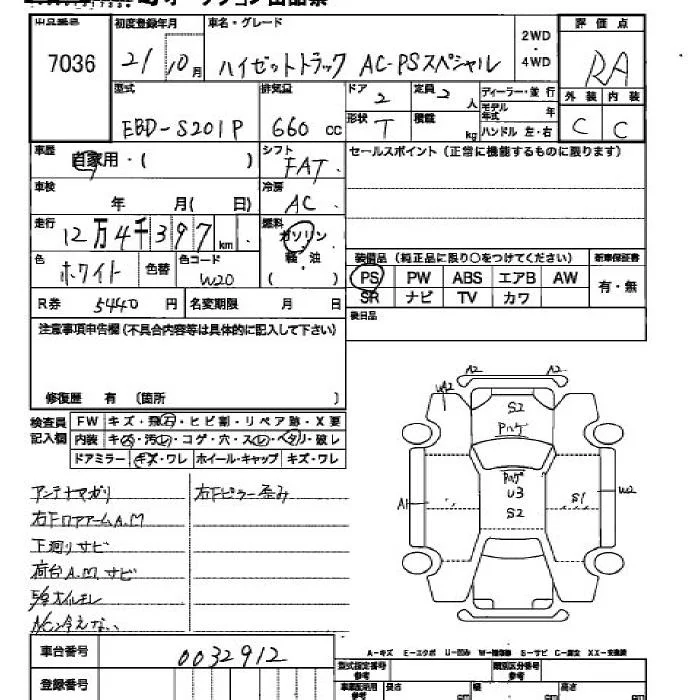 出品番号
7036
初度登録年月
21 10月
車名・グレード
ハイゼットトラック AC-PSスペシャル
2WD
・
4WD
評価点
RA
外装 内装
C C
型式
EBD-S201P
排気量
660 cc
ドア 2
定員 2 人
形状 T
積載 kg
ディーラー・並行
モデル年式 年
ハンドル 左・右
車歴
自家用・( )
シフト
FAT
セールスポイント (正常に機能するものに限ります)
車検
年 月( 日)
冷房
AC
走行
12万4千397 km
燃料
ガソリン
軽・油
( )
色
ホワイト
色替
色コード
W20
装備品 (純正品に限り○をつけてください)
PS PW ABS エアB AW
SR ナビ TV カワ
新車保証書
有・無
R券 5440 円
名変期限 月 日
後日品
注意事項申告欄 (不具合内容等は具体的に記入して下さい)
修復歴 有 〔箇所 〕
検査員記入欄
FW キズ・飛石・ヒビ割・リペア跡・X要
内装 キズ・汚レ・コゲ・穴・スレ・ヘタリ・破レ
ドアミラー キズ・ワレ ホイール・キャップ キズ・ワレ
アンテナマガリ
右Fロアアーム A.M
下廻りサビ
荷台A.M.サビ
オイルモレ
A/C冷えない
右Fピラー歪み
A2 A2
UA2
S2
Pハゲ
Pハゲ
U3
S2
A1
S1
U2
A-キズ E-エクボ U-凹み W-補修跡 S-サビ C-腐食 XX-交換済
車台番号
0032912
登録番号
型式指定番号
参考
類別区分番号
参考
長さ
幅
高さ